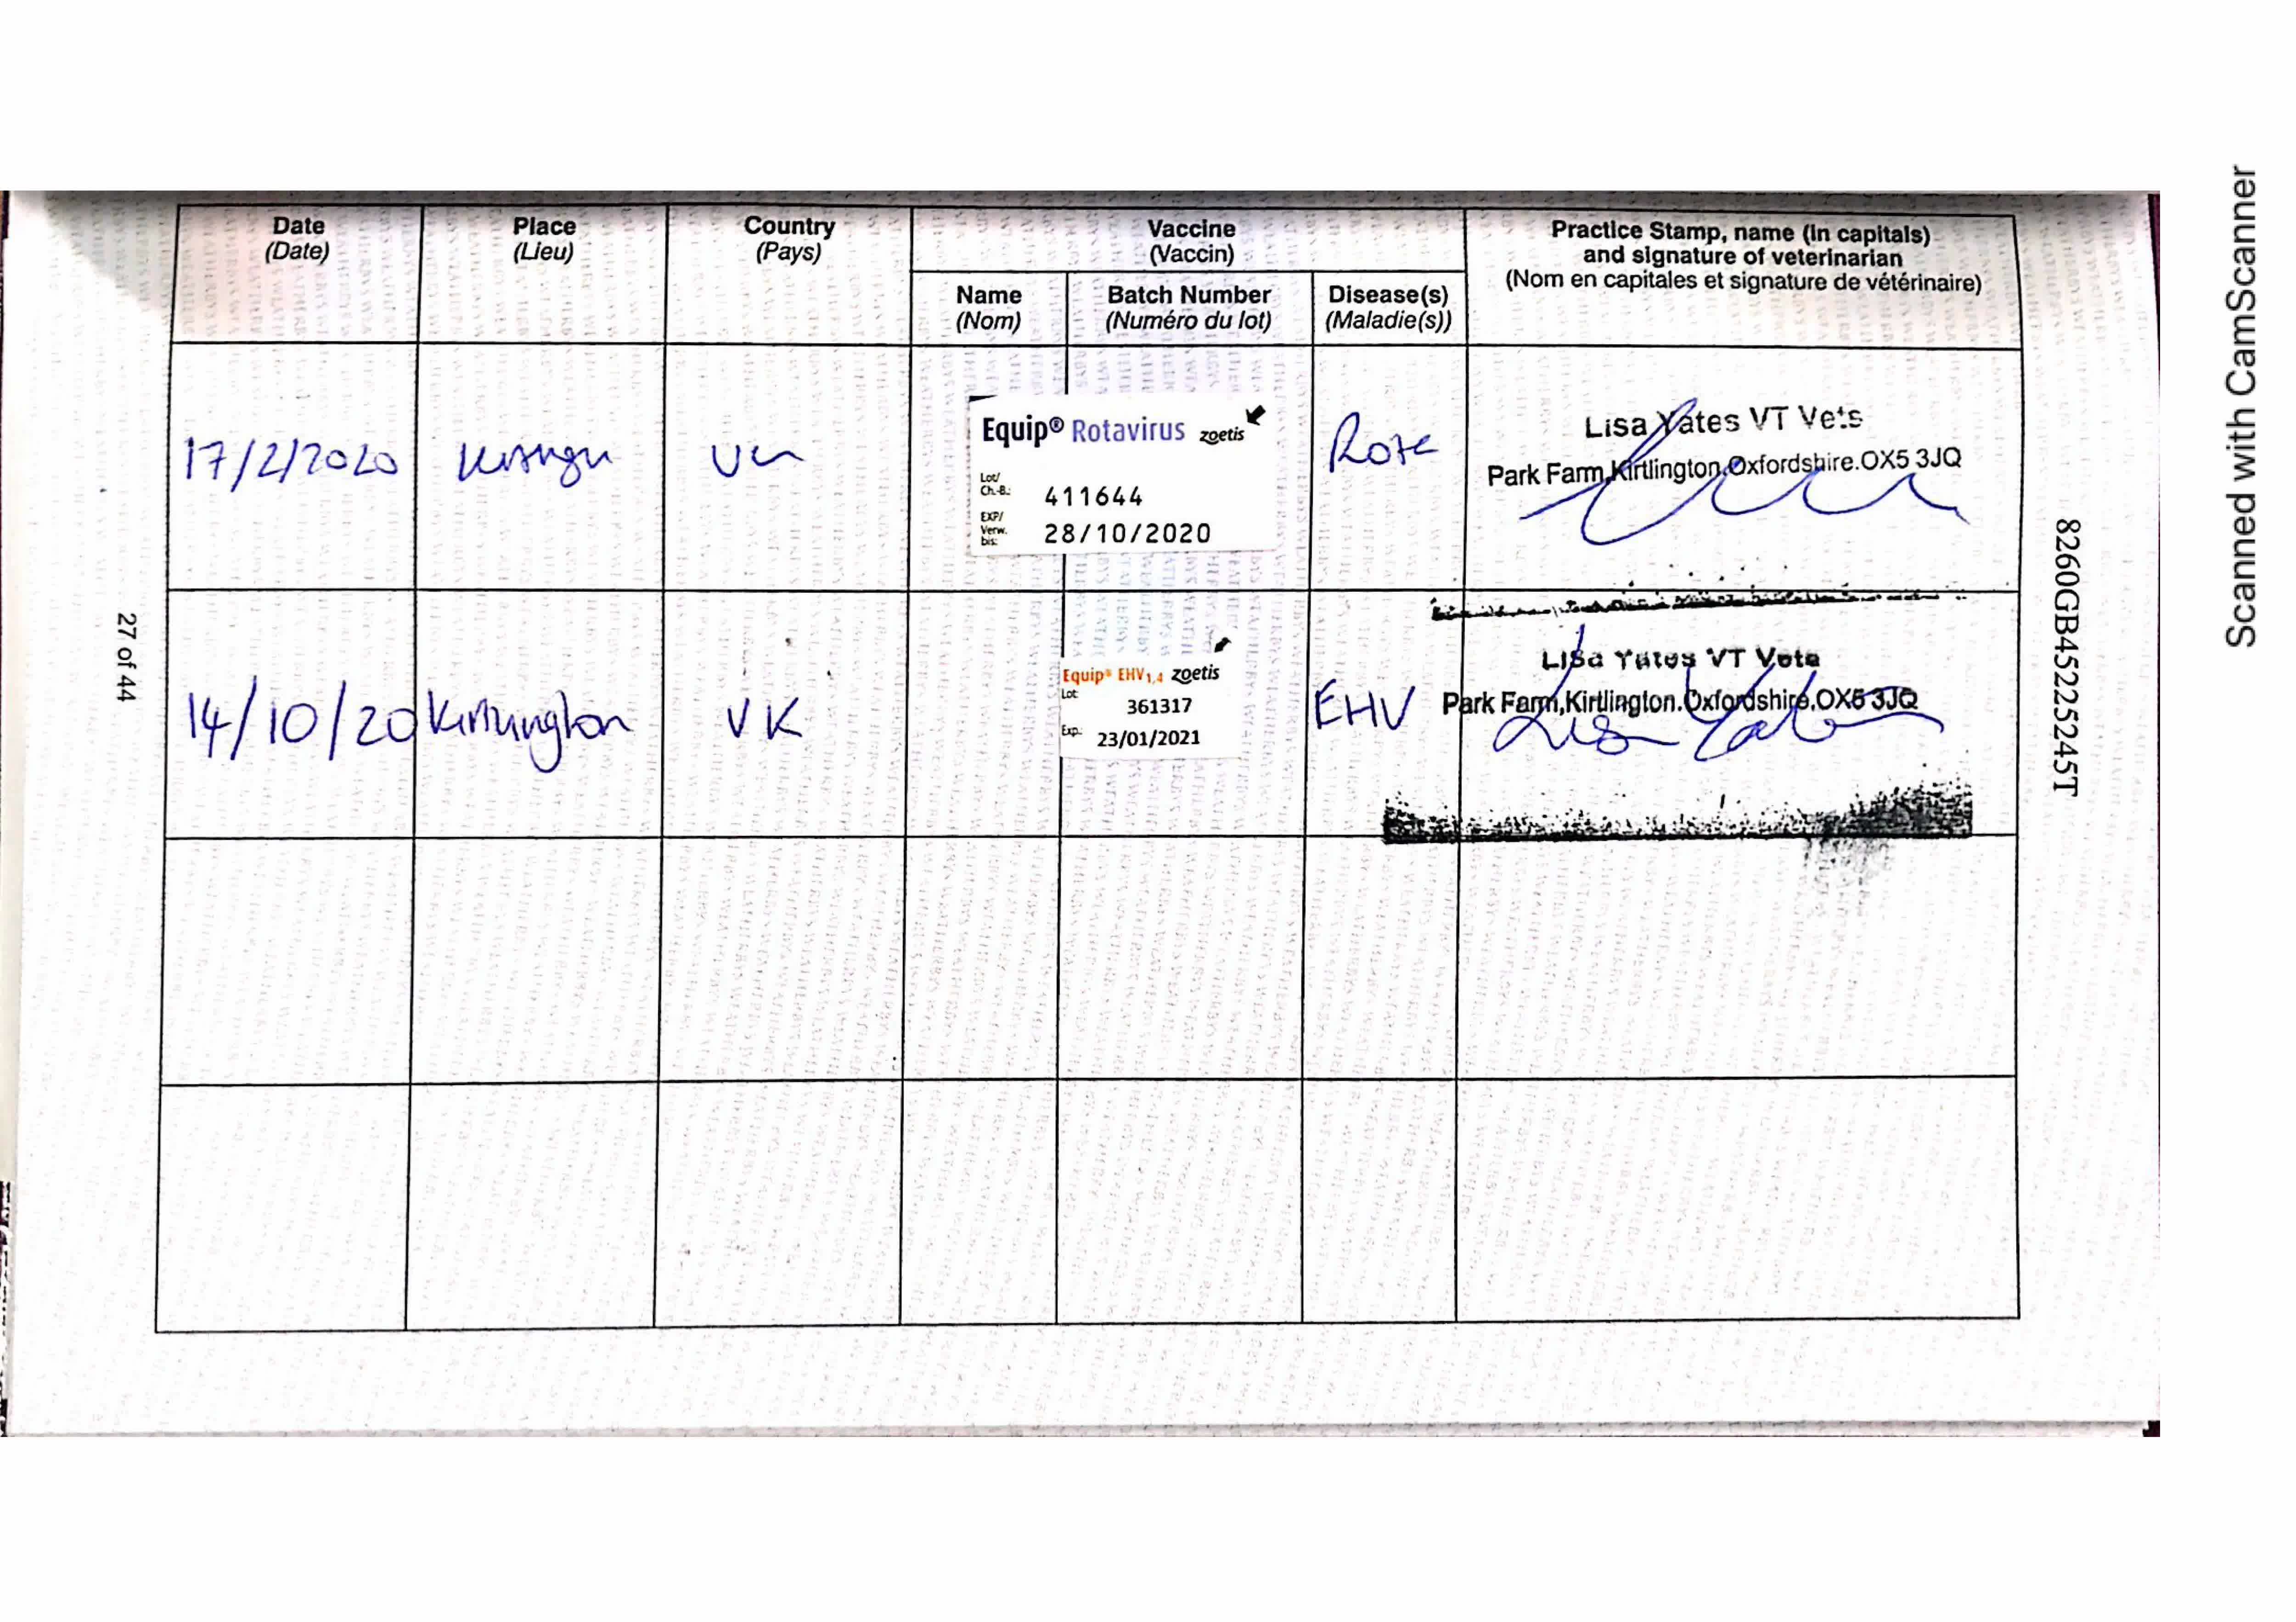 Date
(Date)
Place
(Lieu)
Country
(Pays)
Vaccine
(Vaccin)
Practice Stamp, name (in capitals)
and signature of veterinarian
(Nom en capitales et signature de vétérinaire)
Name
(Nom)
Batch Number
(Numéro du lot)
Disease(s)
(Maladie(s))
17/2/2020
UK
Equip® Rotavirus zoetis
Lot/
Ch.-B.: 411644
EXP/
Verw.
bis: 28/10/2020
Lisa Yates VT Vets
Park Farm,Kirtlington.Oxfordshire.OX5 3JQ
14/10/20
Kirtlington
UK
Equip® EHV1,4 zoetis
Lot: 361317
Exp.: 23/01/2021
EHV
Lisa Yates VT Vets
Park Farm,Kirtlington.Oxfordshire.OX5 3JQ
Lisa Yates
27 of 44
8260GB45225245T
Scanned with CamScanner